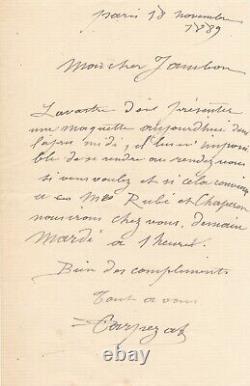 Paris 18 novembre
1889
Mon cher Jambon
Lavastre doit présenter
une maquette aujourd'hui dans
l'après midi, il lui est impossi
ble de se rendre au rendez vous
si vous voulez et si cela convient
a ces Mrs Rubé et Chaperon
nous irons chez vous, demain
Mardi à 1 heures.
Bien des compliments
Tout a vous
Carpezat